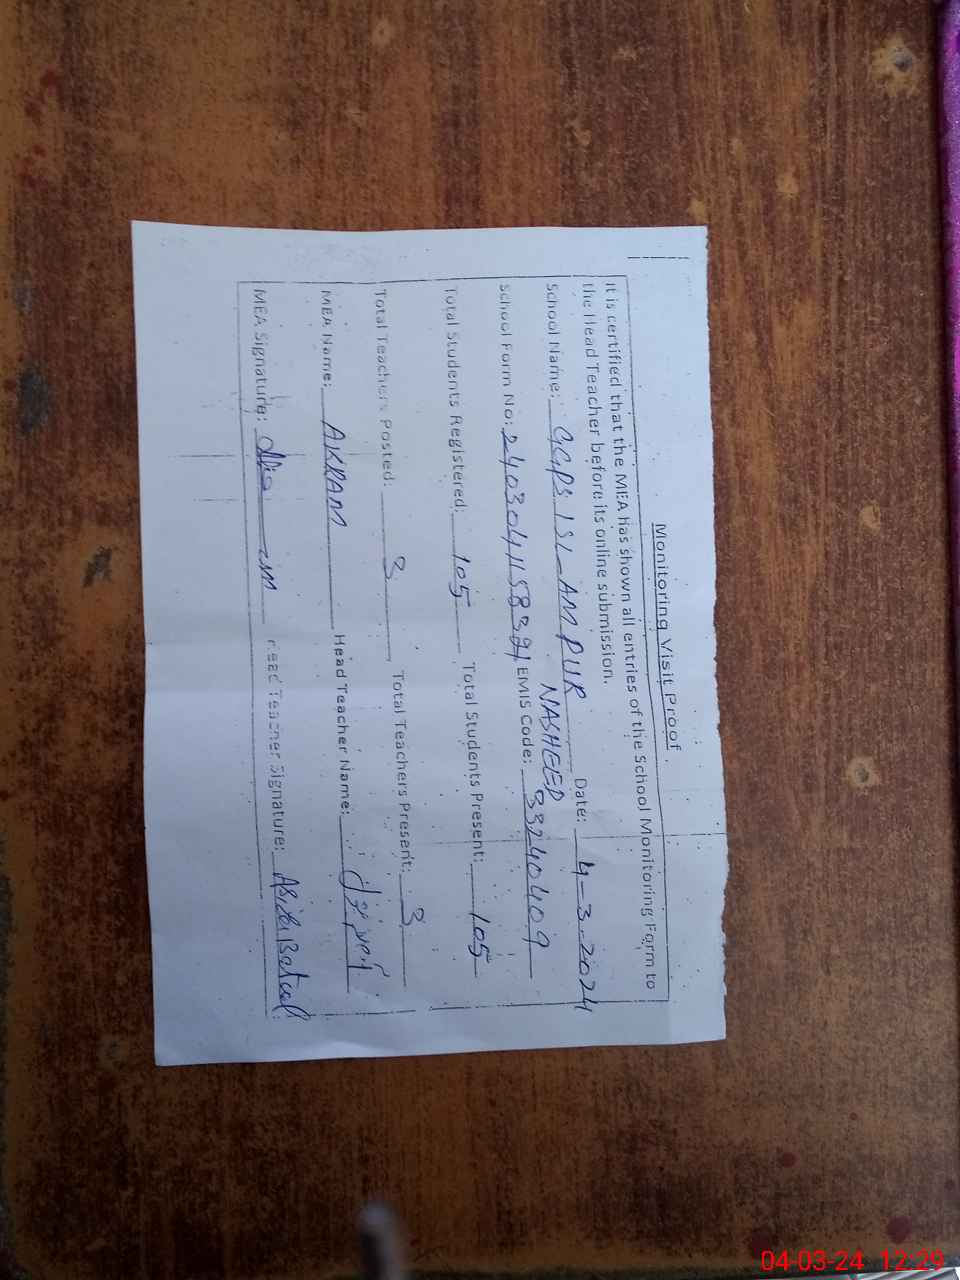 Monitoring Visit Proof
It is certified that the MEA has shown all entries of the School Monitoring Form to
the Head Teacher before its online submission.
School Name: GGPS ISLAMPUR Date: 4-3-2024
NASHEEB
School Form No: EMIS Code: 33240409
Total Students Registered: 105 Total Students Present: 105
Total Teachers Posted: 3 Total Teachers Present: 3
MEA Name: AKRAM Head Teacher Name:
MEA Signature: Head Teacher Signature: Batool
04-03-24 12:29